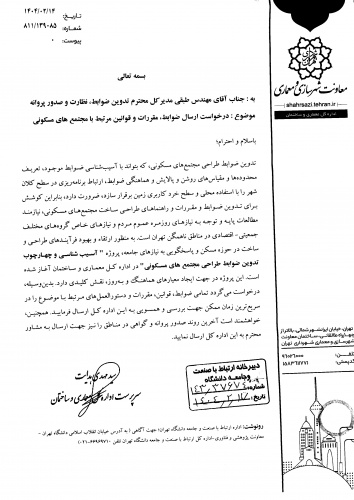 تاریخ: ۱۴۰۴/۰۲/۱۴
شماره: ۸۱۱/۱۳۹۰۸۵
پیوست: ۰
معاونت شهرسازی و معماری
shahrsazi.tehran.ir
اداره کل معماری و ساختمان
بسمه تعالی
به : جناب آقای مهندس طیفی مدیر کل محترم تدوین ضوابط، نظارت و صدور پروانه
موضوع : درخواست ارسال ضوابط، مقررات و قوانین مرتبط با مجتمع های مسکونی
باسلام و احترام؛
تدوین ضوابط طراحی مجتمع‌های مسکونی، که بتواند با آسیب‌شناسی ضوابط موجود، تعریف
محدوده‌ها و مقیاس‌های روشن و پالایش و هماهنگی ضوابط، ارتباط برنامه‌ریزی در سطح کلان
شهر را با استفاده محلی و سطح خرد کاربری زمین برقرار سازد، ضرورت دارد، بنابراین کوشش
برای تدوین ضوابط و مقررات و راهنماهای طراحی ساخت مجتمع‌های مسکونی، نیازمند
مطالعات پایه و توجه به نیازهای روزمره عموم مردم و نیازهای خاص گروه‌های مختلف
جمعیتی- اقتصادی در مناطق ناهمگن تهران است. به منظور ارتقاء و بهبود فرآیندهای طراحی و
ساخت در حوزه مسکن و پاسخگویی به نیازهای جامعه، پروژه " آسیب شناسی و چهارچوب
تدوین ضوابط طراحی مجتمع های مسکونی" در اداره کل معماری و ساختمان آغاز شده
است. این پروژه در جهت ایجاد معیارهای هماهنگ و به‌روز، نقش کلیدی دارد. بدین‌وسیله،
درخواست می‌گردد تمامی ضوابط، قوانین، مقررات و دستورالعمل‌های مرتبط با موضوع را در
سریع‌ترین زمان ممکن جهت بررسی و همسویی به این اداره کل ارسال فرمایید. همچنین،
خواهشمند است آخرین روند صدور پروانه و گواهی در مناطق را نیز جهت ارسال به مشاور
محترم به این اداره کل ارسال نمایید.
سید مهدی هدایت
سرپرست اداره کل معماری و ساختمان
دبیرخانه ارتباط با صنعت
و جامعه دانشگاه
شماره:
تاریخ:
رونوشت: اداره ارتباط با صنعت و جامعه دانشگاه تهران؛ جهت آگاهی ( به آدرس خیابان انقلاب اسلامی دانشگاه تهران -
معاونت پژوهشی و فناوری- اداره کل ارتباط با صنعت و جامعه دانشگاه تهران تلفن ۶۶۹۶۹۷۱۰-۰۲۱)
تلفن:
کدپستی: